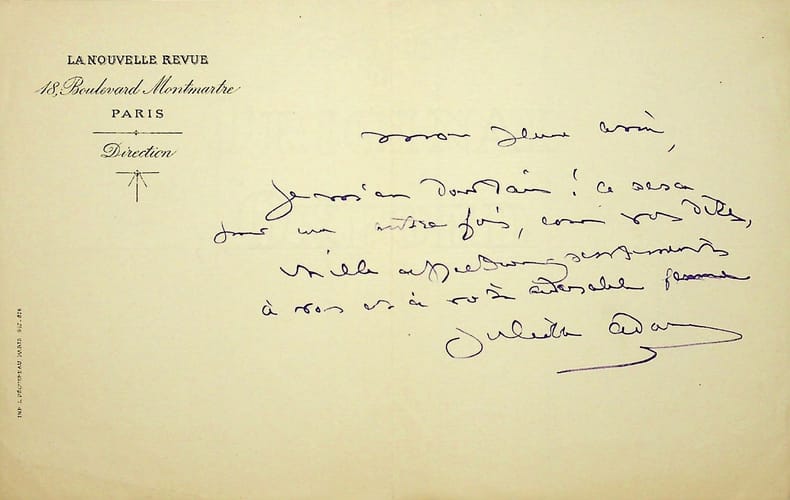 LA NOUVELLE REVUE
18, Boulevard Montmartre
PARIS
Direction
mon jeune ami,
Je ! ce sera
pour une autre fois, comme vous dites,
mille affectueux sentiments
à vous et à votre adorable femme
Juliette Adam